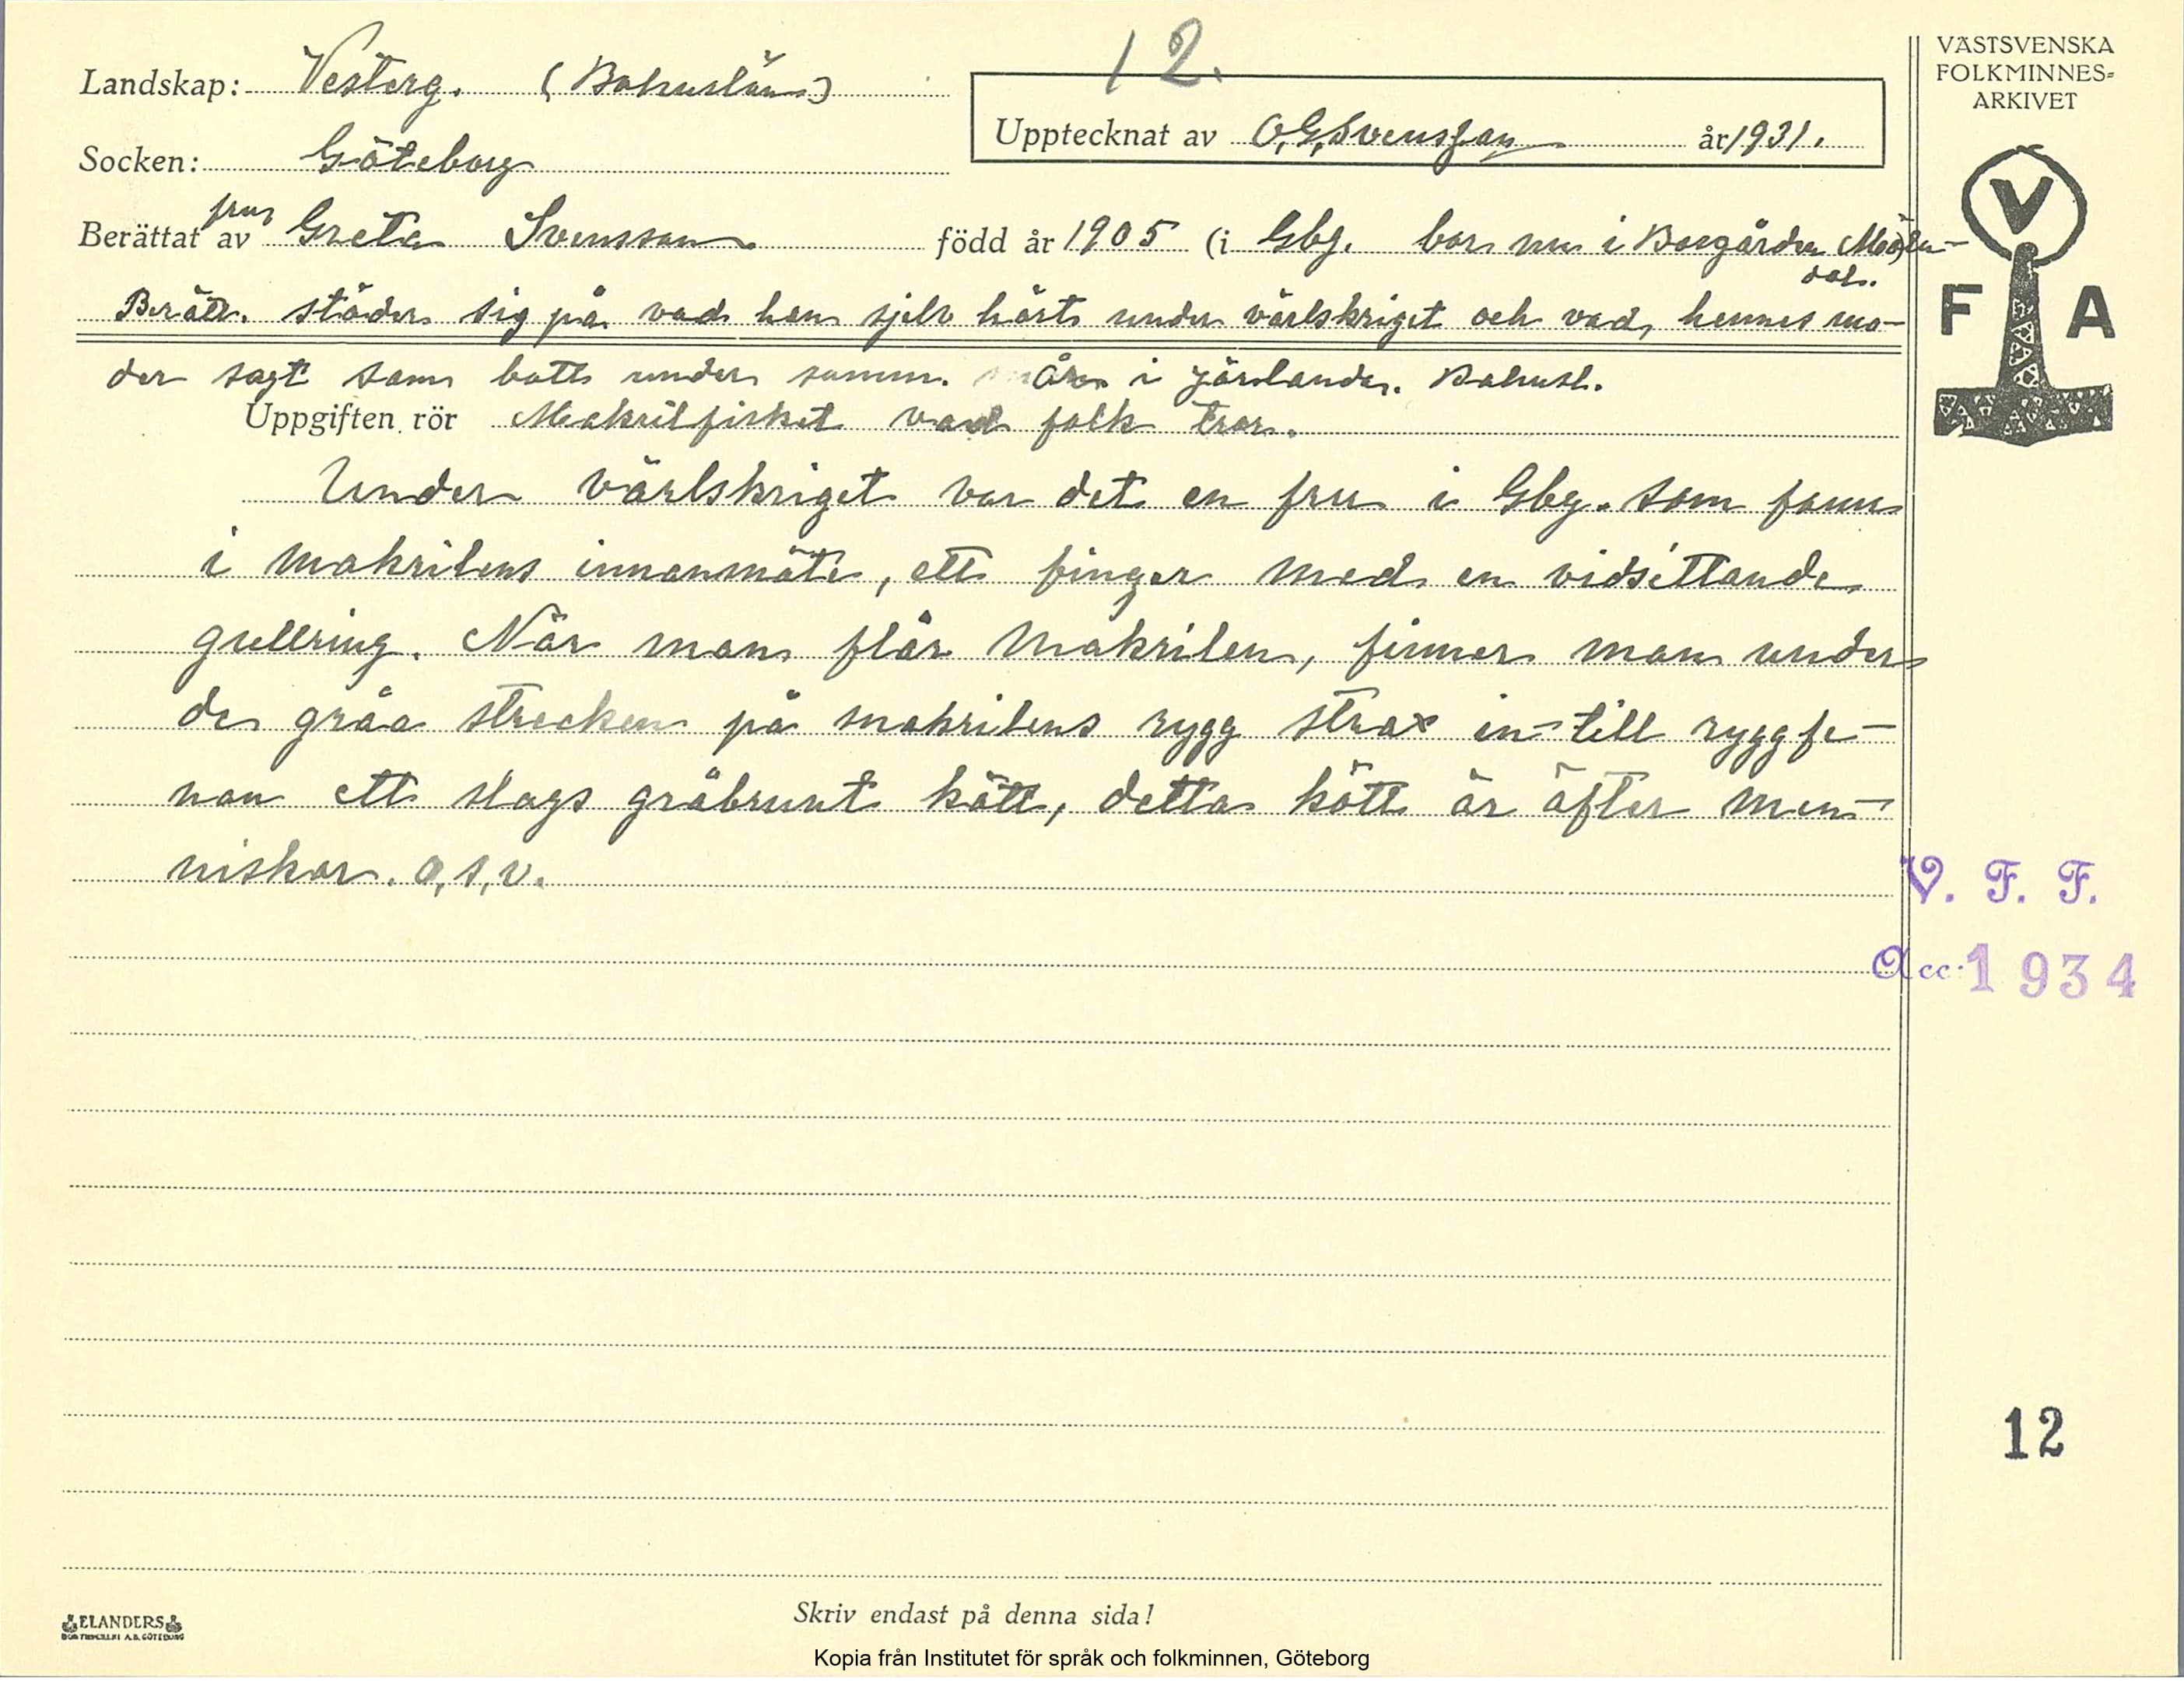 12.
VÄSTSVENSKA
FOLKMINNES=
ARKIVET
Landskap: Vesterg. (Bohuslän)
Upptecknat av O,G,Svensson år 1931.
Socken: Göteborg
fru
Berättat av Greta Svensson. född år 1905 (i Gbg. bor nu i Bosgården Möln-
dal.
Berätt. stöder sig på vad hon sjelv hört under värlskriget och vad hennes mo-
der sagt som bott under samm. åren i Jörlanda. Bohusl.
V
F A
Uppgiften rör Makrilfisket vad folk tror.
Under värlskriget var det en fru i Gbg. som fann
i makrilens innanmäte, ett finger med en vidsittande
gullring. När man flår makrilen, finner man under
de gråa strecken på makrilens rygg strax in-till ryggfe-
nan ett slags gråbrunt kött, detta kött är äfter men-
niskor. o,s,v.
V. F. F.
Acc: 1934
12
Skriv endast på denna sida!
ELANDERS
BOKTRYCKERI A.B. GÖTEBORG
Kopia från Institutet för språk och folkminnen, Göteborg